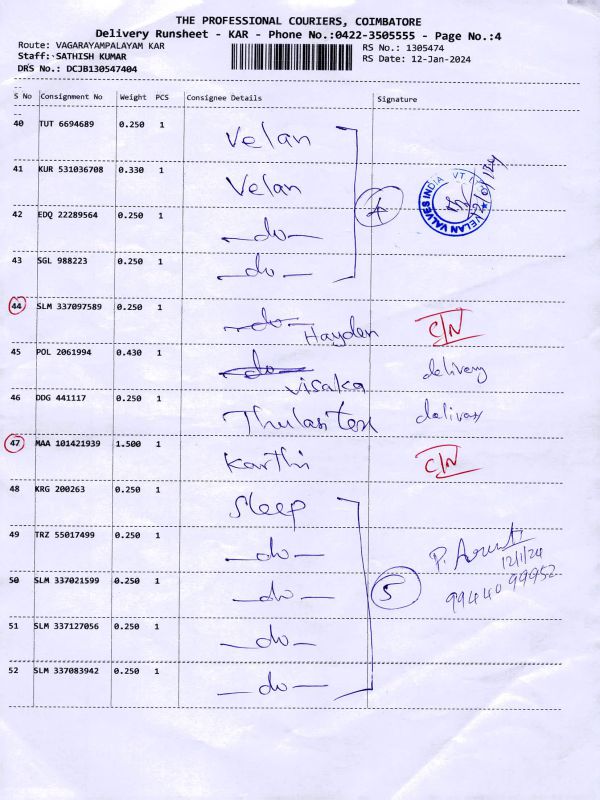 THE PROFESSIONAL COURIERS, COIMBATORE
Delivery Runsheet - KAR - Phone No.:0422-3505555 - Page No.:4
Route: VAGARAYAMPALAYAM KAR
RS No.: 1305474
Staff: SATHISH KUMAR
RS Date: 12-Jan-2024
DRS No.: DCJB130547404
S No Consignment No Weight PCS Consignee Details Signature
40 TUT 6694689 0.250 1 Velan
41 KUR 531036708 0.330 1 Velan
VELAN VALVES INDIA
42 EDQ 22289564 0.250 1 -do-
4
43 SGL 988223 0.250 1 -do-
44 SLM 337097589 0.250 1 -do- Hayden C/N
45 POL 2061994 0.430 1 do visaka delivery
46 DDG 441117 0.250 1 Thulasitex delivery
47 MAA 101421939 1.500 1 Karthi C/N
48 KRG 200263 0.250 1 Sleep
49 TRZ 55017499 0.250 1 -do-
P.
12/1/24
50 SLM 337021599 0.250 1 -do- 5
99440 99952
51 SLM 337127056 0.250 1 -do-
52 SLM 337083942 0.250 1 -do-